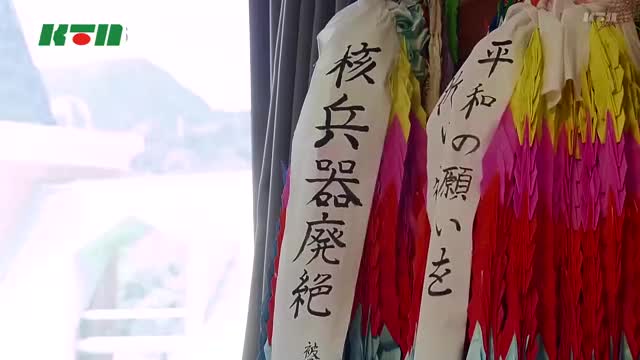 KTN
KTN
平和の願いを
核兵器廃絶
被